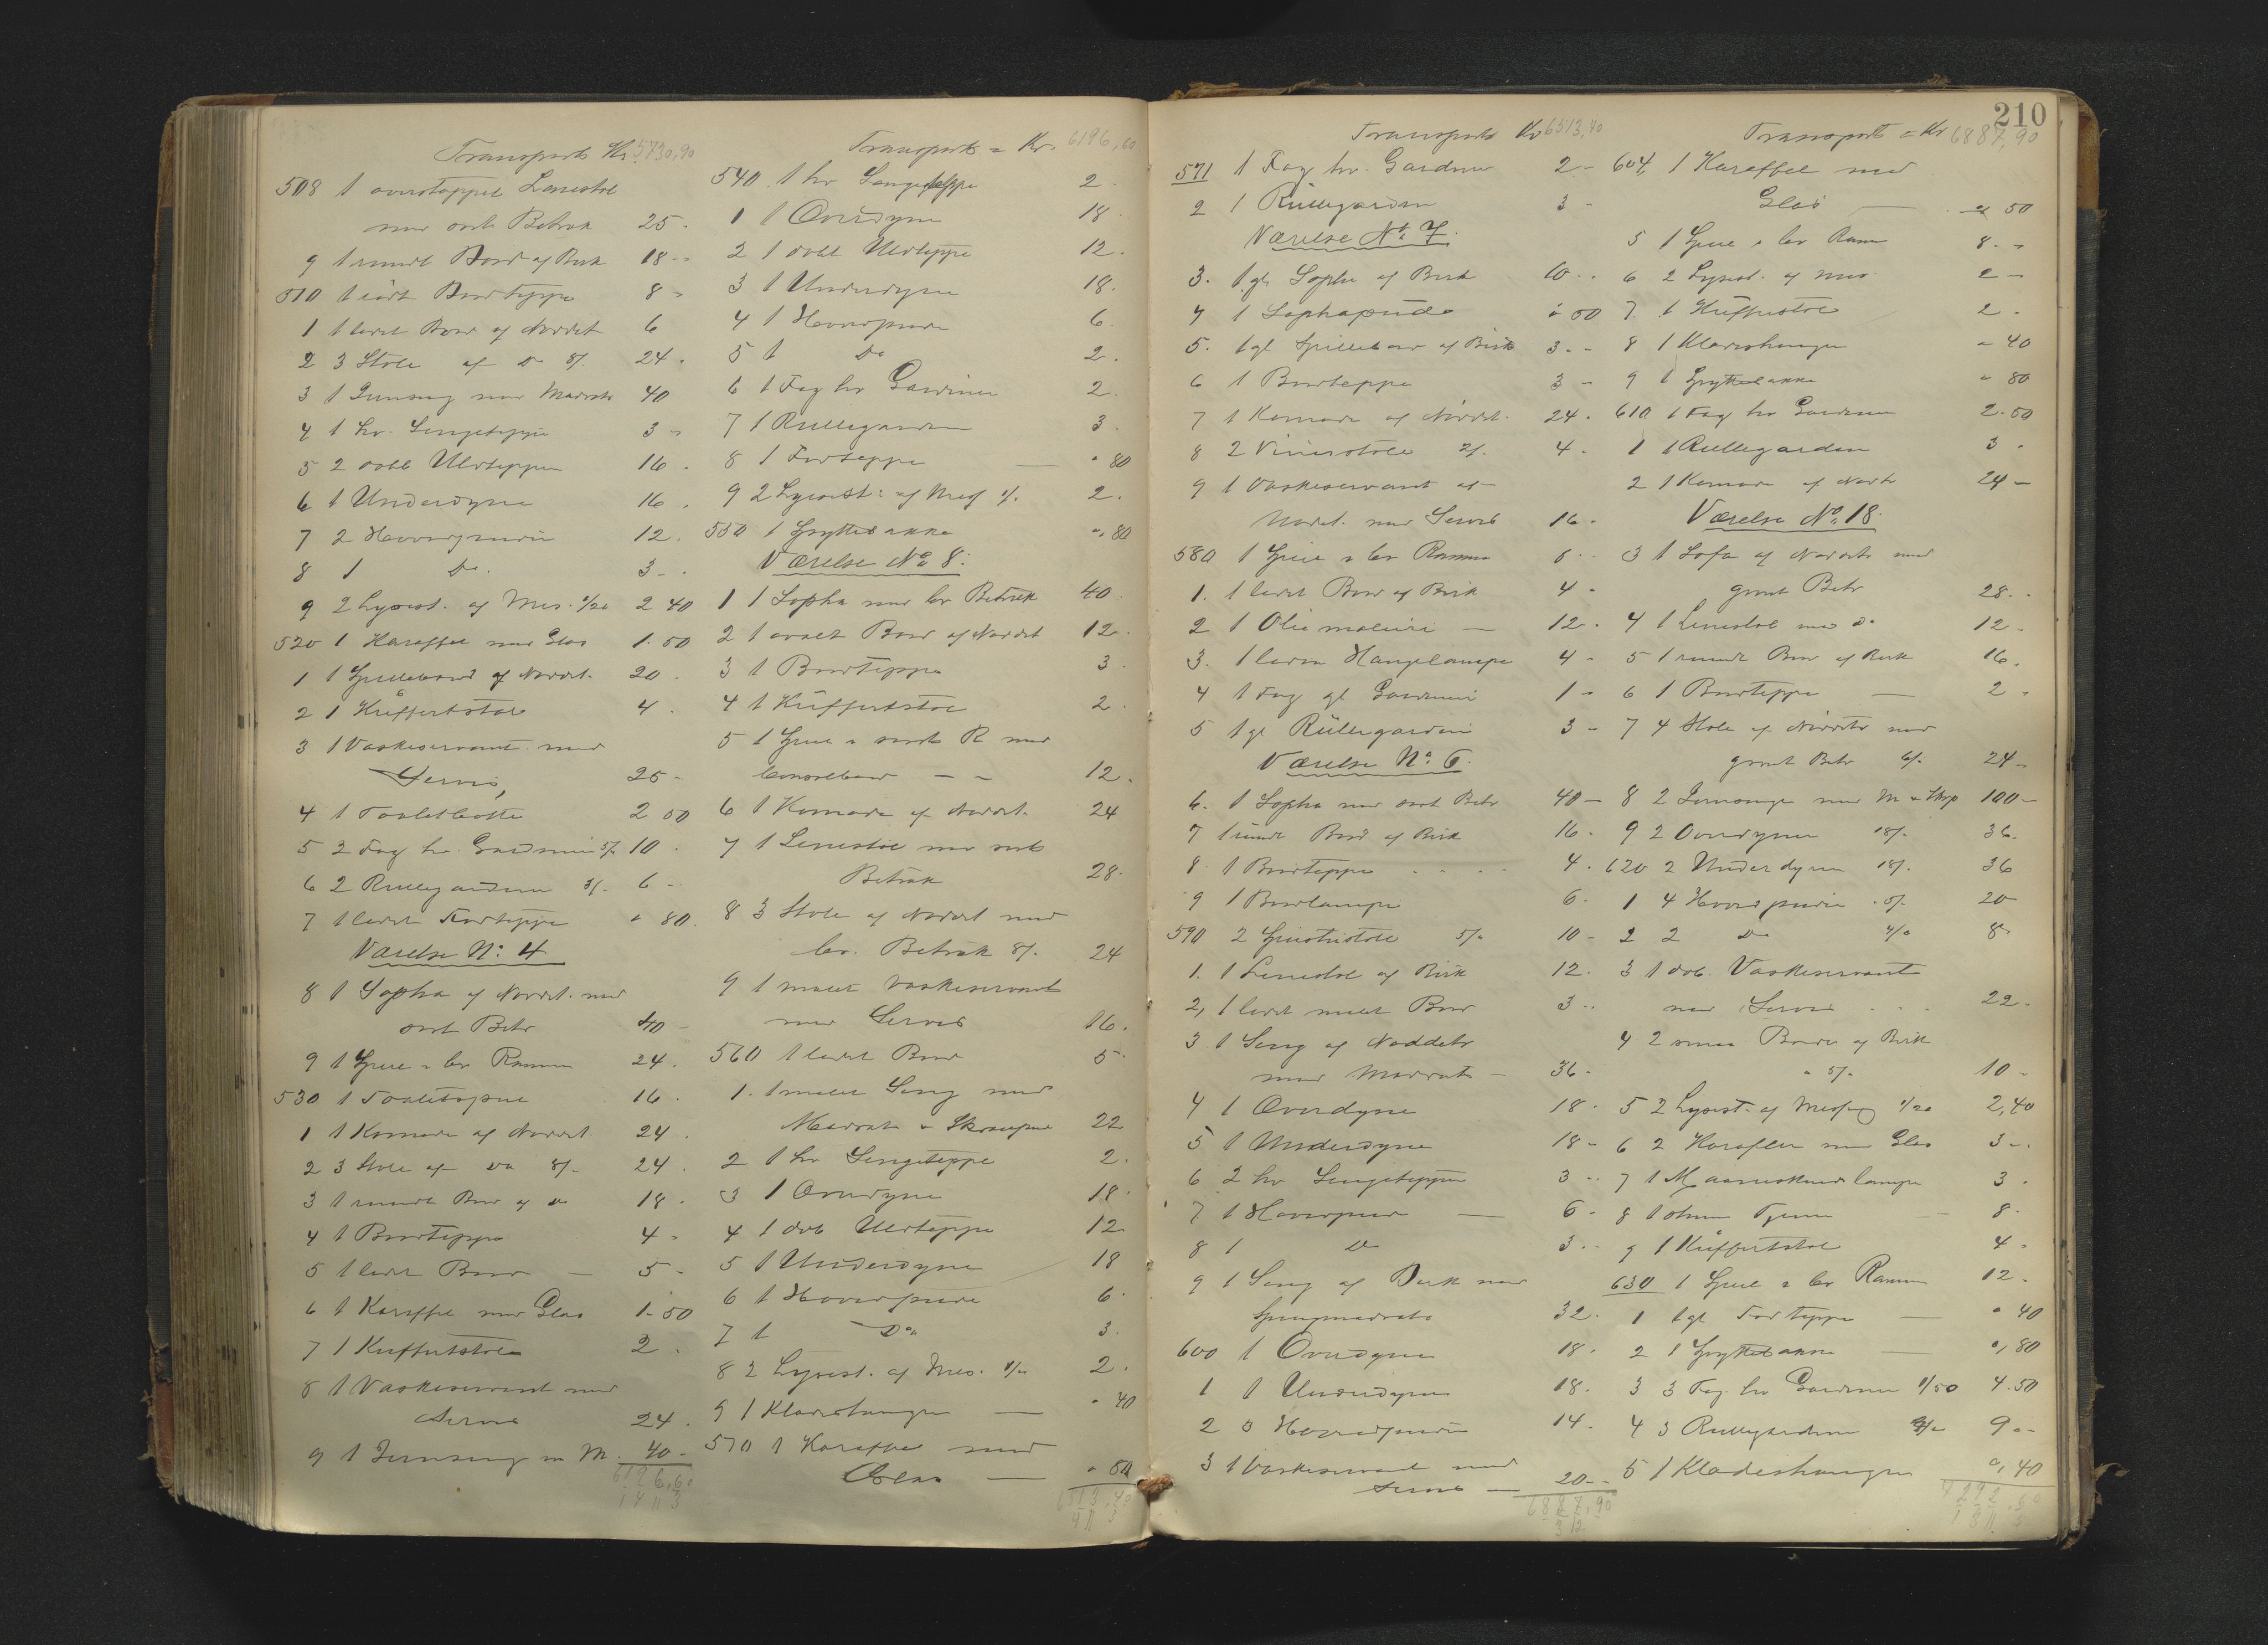 210
Transport Kr. 5730,90
508 1 overstoppet Lænestol
med sort Betræk 25 -
9 1 rundt Bord af Birk 18 -
510 1 rødt Bordteppe 8 -
1 1 lidet Bord af Nødtr. 6
2 3 Stole af Do 8/- 24 -
3 1 Jernseng med Madrats 40
4 1 hv. Sengeteppe 3 -
5 2 dobb Uldtepper 16 -
6 1 Underdyne 16 -
7 2 Hovedpuder 12.
8 1 Do. 3 -
9 2 Lysest. af Mes. 1/20 2 40
520 1 Karaffel med Glas 1.50
1 1 Spillebord af Nødtr. 20 -
2 1 Kuffertstol 4 -
3 1 Vaskeservant med
Servis, 25 -
4 1 Toaletbøtte 2 50
5 2 Fag hv. Gardiner 5/- 10 -
6 2 Rullegardiner 3/- 6 -
7 1 lidet Fodteppe " 80
Værelse No: 4
8 1 Sopha af Nødtr. med
sort Betr 40 -
9 1 Speil i br Ramme 24.
530 1 Toaletspeil 16.
1 1 Komode af Nødtr. 24.
2 3 Stole af Do 8/- 24.
3 1 rundt Bord af do 18.
4 1 Bordteppe 4 -
5 1 lidet Bord — 5 -
6 1 Karaffel med Glas 1.50
7 1 Kuffertstol 2.
8 1 Vaskeservant med
Servis 24.
9 1 Jernseng m M. 40 -
6196,60
Transport = Kr. 6196,60
540 1 hv Sengeteppe 2.
1 1 Overdyne 18.
2 1 dobb Uldteppe 12.
3 1 Underdyne 18.
4 1 Hovedpude 6.
5 1 Do 2.
6 1 Fag hv Gardiner 2.
7 1 Rullegardin 3.
8 1 Fodteppe — " 80
9 2 Lysest: af Mes 1/- 2.
550 1 Spyttebakke " 80
Værelse No 8:
1 1 Sopha med br Betræk 40.
2 1 ovalt Bord af Nødtr 12.
3 1 Bordteppe 3.
4 1 Kuffertstol 2.
5 1 Speil i sort R med
Consolbord - - 12.
6 1 Komode af Nødtr. 24
7 1 Lænestol med sort
Betræk 28.
8 3 Stole af Nødtr med
br. Betræk 8/- 24
9 1 malet Vaskeservant
med Servis 16.
560 1 lidet Bord 5.
1. 1 malet Seng med
Madrats & Skraapude 22
2 1 hv Sengeteppe 2.
3 1 Overdyne 18.
4 1 dob Uldteppe 12
5 1 Underdyne 18
6 1 Hovedpude 6.
7 1 Do 3.
8 2 Lysest. af Mes. 1/- 2.
9 1 Klædeshænger — " 40
570 1 Karaffel med
Glas — " 50
6513,40
Transport Kr 6513,40
571 1 Fag hv. Gardiner 2 -
2 1 Rullegardin 3 -
Værelse No. 7.
3. 1 gl. Sopha af Birk 10 -
4 1 Sophapude " 50
5. 1 gl Spillebord af Birk 3 -
6 1 Bordteppe 3 -
7 1 Komode af Nødtr. 24.
8 2 Vinerstole 2/- 4.
9 1 Vaskeservant af
Nødtr. med Servis 16 -
580 1 Speil i br Ramme 6 -
1. 1 lidet Bord af Birk 4 -
2 1 Oliemaleri — 12.
3. 1 liden Hængelampe 4 -
4 1 Fag gl Gardiner 1 -
5 1 gl Rullegardin 3 -
Værelse No: 6.
6. 1 Sopha med sort Betr 40 -
7 1 rundt Bord af Birk 16 -
8 1 Bordteppe . . . . 4.
9 1 Bordlampe 6.
590 2 5/- 10 -
1. 1 Lænestol af Birk 12.
2, 1 lidet malet Bord 3 -
3 1 Seng af Nøddetr
med Madrats — 36 -
4 1 Overdyne 18.
5 1 Underdyne 18 -
6 2 hv Sengetepper 3 -
7 1 Hovedpude — 6 -
8 1 Do 3 -
9 1 Seng af Birk med
Springmadrats 32.
600 1 Overdyne 18.
1 1 Underdyne 18.
2 3 Hovedpuder 14 -
3 1 Vaskeservant med
Servis — 20 -
6887,90
Transport = Kr 6887,90
604 1 Karaffel med
Glas — " 50
5 1 Speil i br Ramme 8 -
6 2 Lysest. af Mes. 2 -
7 1 Kuffertstol 2.
8 1 Klædeshænger " 40
9 1 Spyttebakke " 80
610 1 Fag hv Gardiner 2.50
1 1 Rullegardin 3.
2 1 Komode af Nødtr 24 -
Værelse No. 18.
3 1 Sofa af Nøddetr med
grønt Betr 28.
4 1 Lænestol med do 12.
5 1 rundt Bord af Birk 16.
6 1 Bordteppe — 2 -
7 4 Stole af Nøddetr med
grønt Betr 6/- 24 -
8 2 Jernsenge med M & Skrp 100 -
9 2 Overdyner 18/- 36.
620 2 Underdyner 18/- 36
1 4 Hovedpuder 5/- 20
2 2 Do 4/- 8 -
3 1 dob. Vaskeservant
med Servis . . . 22 -
4 2 smaa Borde af Birk
5/- 10 -
5 2 Lysest. af Messing 1/20 2,40
6 2 Karafler med Glas 3 -
7 1 Maaneskinslampe 3.
8 1 8.
9 1 Kuffertstol 4 -
630 1 Speil i br Ramme 12 -
1 1 gl Fodteppe — " 40
2 1 Spyttebakke — ", 80
3 3 Fag hv Gardiner 1/50 4.50
4 3 Rullegardiner 3/- 9 -
5 1 Klædeshænger ", 40
7292,60